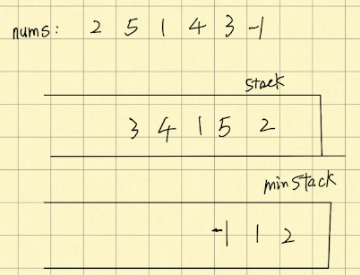 nums: 2 5 1 4 3 -1
stack
3 4 1 5 2
minstack
-1 1 2